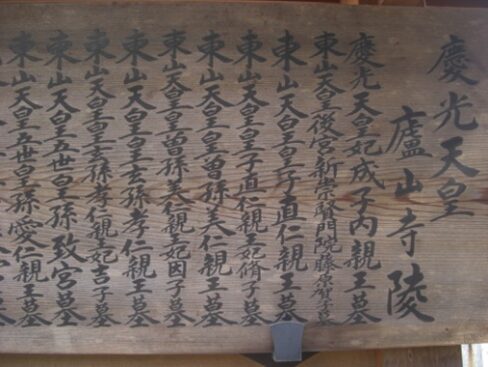 慶光天皇
廬山寺陵
慶光天皇妃成子内親王墓
東山天皇後宮新崇賢門院藤原賀子墓
東山天皇皇子直仁親王墓
東山天皇皇子直仁親王妃脩子墓
東山天皇皇曽孫美仁親王墓
東山天皇皇曽孫美仁親王妃因子墓
東山天皇皇玄孫孝仁親王墓
東山天皇皇玄孫孝仁親王妃吉子墓
東山天皇五世皇孫致宮墓
東山天皇五世皇孫愛仁親王墓